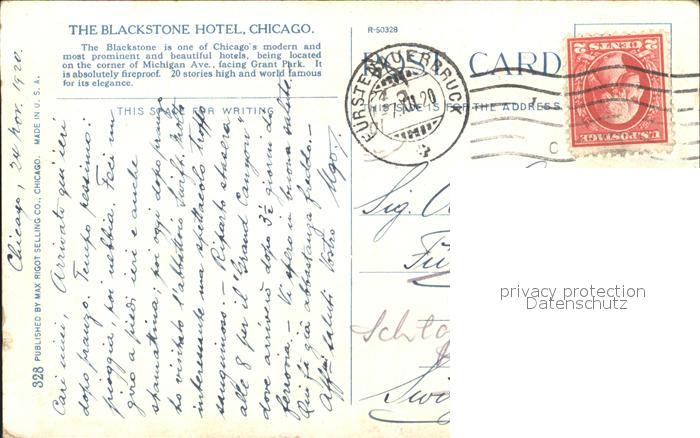 THE BLACKSTONE HOTEL, CHICAGO.
The Blackstone is one of Chicago's modern and
most prominent and beautiful hotels, being located
on the corner of Michigan Ave., facing Grant Park. It
is absolutely fireproof. 20 stories high and world famous
for its elegance.
R-50328
POST CARD
THIS SPACE FOR WRITING
THIS SIDE IS FOR THE ADDRESS
328 PUBLISHED BY MAX RIGOT SELLING CO., CHICAGO. MADE IN U.S.A.
Chicago, 24 Nov. 1920.
Cari miei, Arrivato qui ieri
dopo pranzo. Tempo pessimo:
pioggia, poi nebbia. Feci un
giro a piedi ieri e anche
stamattina; poi oggi dopo pranzo
ho visitato l'abbattoio Swift. Molto
interessante ma spettacolo troppo
sanguinoso. — Riparto stasera
alle 8 per il "Grand Canyon"
dove arriverò dopo 3½ giorni di
ferrovia. — Vi spero in buona salute.
Qui fa già abbastanza freddo. —
Affsi saluti Vostro Ugo.
FÜRSTENAUERBRUCK
XII.20
2 CENTS 2
U.S. POSTAGE
Sig.
Fü
Swi
privacy protection
Datenschutz